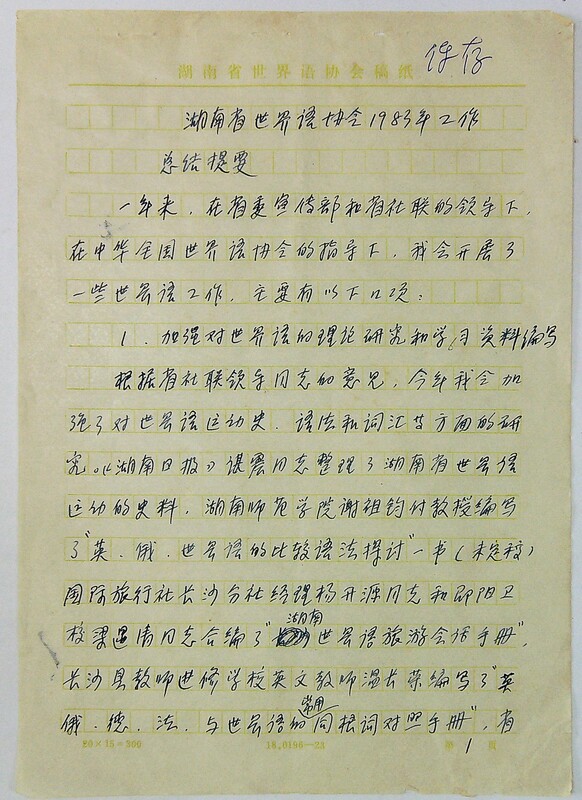 保存
湖南省世界语协会稿纸
湖南省世界语协会1983年工作
总结提要
一年来,在省委宣传部和省社联的领导下,
在中华全国世界语协会的指导下,我会开展了
一些世界语工作,主要有以下几项:
1.加强对世界语的理论研究和学习资料编写
根据省社联领导同志的意见,今年我会加
强了对世界语运动史、语法和词汇等方面的研
究。《湖南日报》谌震同志整理了湖南省世界语
运动的史料,湖南师范学院谢祖钧付教授编写
了“英、俄、世界语的比较语法探讨”一书(未定稿)
国际旅行社长沙分社经理杨开源同志和邵阳卫
校梁 清同志合编了“湖南世界语旅游会话手册”,
长沙县教师进修学校英文教师温长 编写了“英
俄、德、法、与世界语的常用同根词对照手册”,省
20×15=300
18.0196—23
第1页